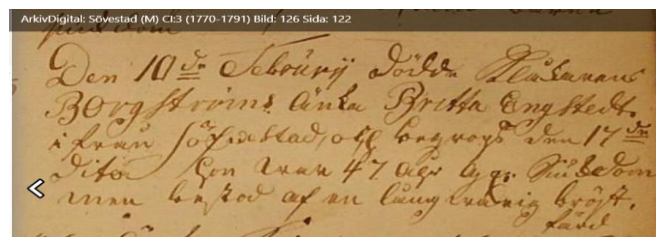 ArkivDigital: Sövestad (M) CI:3 (1770-1791) Bild: 126 Sida: 122
Den 10de Febourij dödde Klåkarens
Borgströms änka Britta Engstedt.
ifrån Söfvestad, och begrofs den 17de
dito hon war 47 åhr g:l. Siukdom
men bestod af en långwarig bröst.